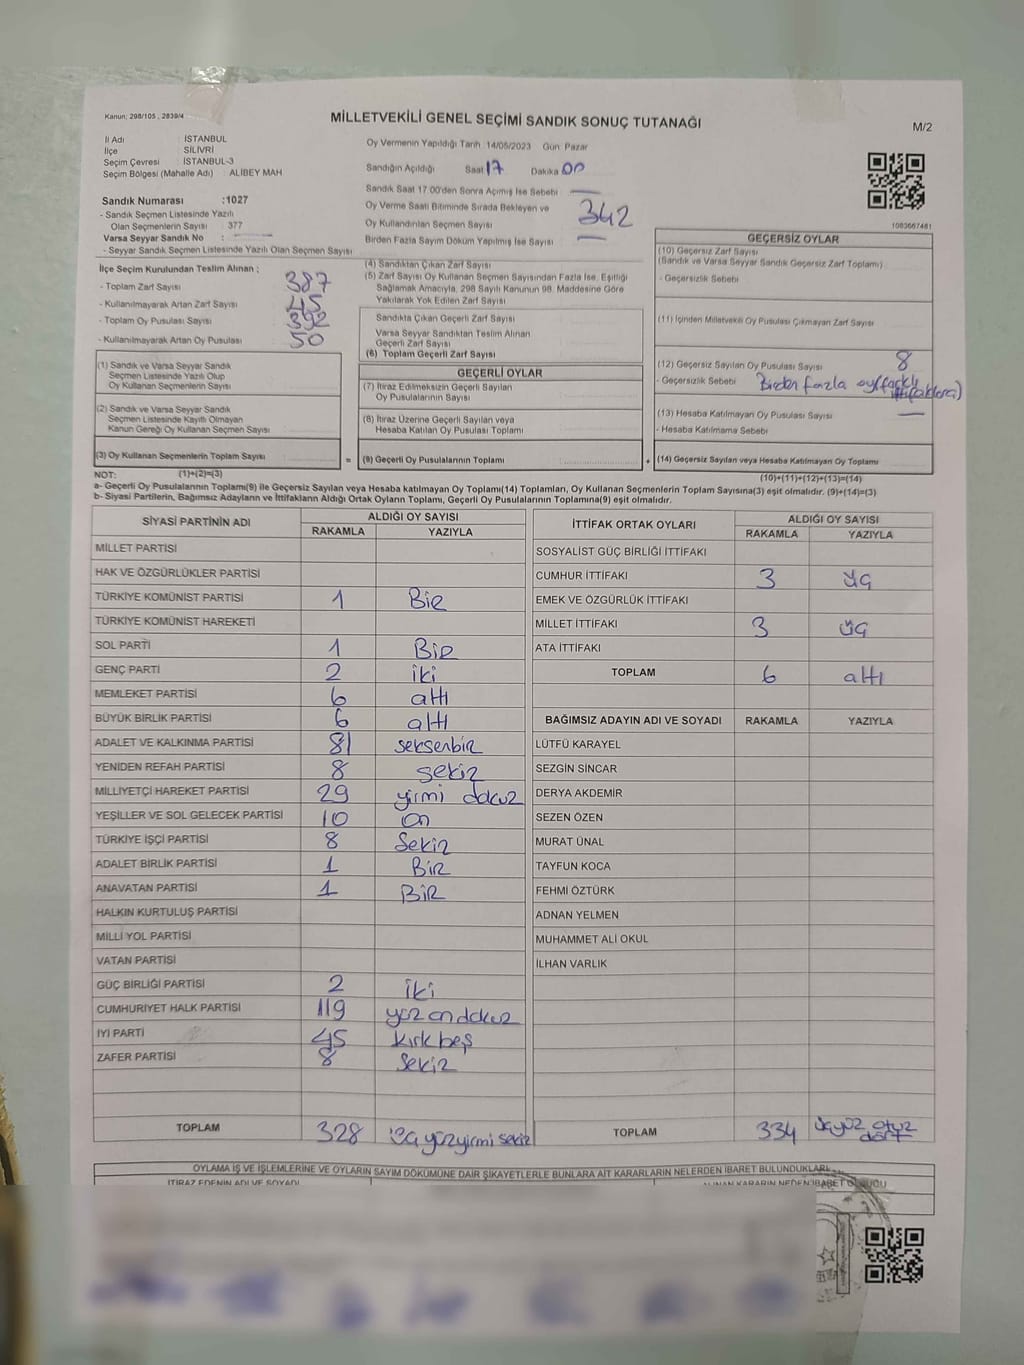 Kanun; 298/105 , 2839/4
MİLLETVEKİLİ GENEL SEÇİMİ SANDIK SONUÇ TUTANAĞI
M/2
İl Adı : İSTANBUL
İlçe : SİLİVRİ
Seçim Çevresi : İSTANBUL-3
Seçim Bölgesi (Mahalle Adı) ALİBEY MAH
Oy Vermenin Yapıldığı Tarih 14/05/2023 Gün: Pazar
Sandığın Açıldığı Saat 17 Dakika 00
Sandık Saat 17.00'den Sonra Açılmış İse Sebebi
Oy Verme Saati Bitiminde Sırada Bekleyen ve
Oy Kullandırılan Seçmen Sayısı
342
Birden Fazla Sayım Döküm Yapılmış İse Sayısı
1083667481
Sandık Numarası :1027
- Sandık Seçmen Listesinde Yazılı
Olan Seçmenlerin Sayısı : 377
Varsa Seyyar Sandık No :
- Seyyar Sandık Seçmen Listesinde Yazılı Olan Seçmen Sayısı
İlçe Seçim Kurulundan Teslim Alınan ;
- Toplam Zarf Sayısı 387
- Kullanılmayarak Artan Zarf Sayısı 45
- Toplam Oy Pusulası Sayısı 392
- Kullanılmayarak Artan Oy Pusulası 50
(1) Sandık ve Varsa Seyyar Sandık
Seçmen Listesinde Yazılı Olup
Oy Kullanan Seçmenlerin Sayısı
(2) Sandık ve Varsa Seyyar Sandık
Seçmen Listesinde Kayıtlı Olmayan
Kanun Gereği Oy Kullanan Seçmen Sayısı
(3) Oy Kullanan Seçmenlerin Toplam Sayısı
(4) Sandıktan Çıkan Zarf Sayısı
(5) Zarf Sayısı Oy Kullanan Seçmen Sayısından Fazla İse, Eşitliği
Sağlamak Amacıyla, 298 Sayılı Kanunun 98. Maddesine Göre
Yakılarak Yok Edilen Zarf Sayısı
Sandıkta Çıkan Geçerli Zarf Sayısı
Varsa Seyyar Sandıktan Teslim Alınan
Geçerli Zarf Sayısı
(6) Toplam Geçerli Zarf Sayısı
GEÇERLİ OYLAR
(7) İtiraz Edilmeksizin Geçerli Sayılan
Oy Pusulalarının Sayısı
(8) İtiraz Üzerine Geçerli Sayılan veya
Hesaba Katılan Oy Pusulası Toplamı
= (9) Geçerli Oy Pusulalarının Toplamı
GEÇERSİZ OYLAR
(10) Geçersiz Zarf Sayısı
(Sandık ve Varsa Seyyar Sandık Geçersiz Zarf Toplamı)
- Geçersizlik Sebebi
(11) İçinden Milletvekili Oy Pusulası Çıkmayan Zarf Sayısı
(12) Geçersiz Sayılan Oy Pusulası Sayısı 8
- Geçersizlik Sebebi Birden fazla oy(farklı
ittifaklara)
(13) Hesaba Katılmayan Oy Pusulası Sayısı
- Hesaba Katılmama Sebebi
+ (14) Geçersiz Sayılan veya Hesaba Katılmayan Oy Toplamı
NOT: (1)+(2)=(3)
(10)+(11)+(12)+(13)=(14)
a- Geçerli Oy Pusulalarının Toplamı(9) ile Geçersiz Sayılan veya Hesaba katılmayan Oy Toplamı(14) Toplamları, Oy Kullanan Seçmenlerin Toplam Sayısına(3) eşit olmalıdır. (9)+(14)=(3)
b- Siyasi Partilerin, Bağımsız Adayların ve İttifakların Aldığı Ortak Oyların Toplamı, Geçerli Oy Pusulalarının Toplamına(9) eşit olmalıdır.
SİYASİ PARTİNİN ADI ALDIĞI OY SAYISI
RAKAMLA YAZIYLA
MİLLET PARTİSİ
HAK VE ÖZGÜRLÜKLER PARTİSİ
TÜRKİYE KOMÜNİST PARTİSİ 1 Bir
TÜRKİYE KOMÜNİST HAREKETİ
SOL PARTİ 1 Bir
GENÇ PARTİ 2 iki
MEMLEKET PARTİSİ 6 altı
BÜYÜK BİRLİK PARTİSİ 6 altı
ADALET VE KALKINMA PARTİSİ 81 seksenbir
YENİDEN REFAH PARTİSİ 8 sekiz
MİLLİYETÇİ HAREKET PARTİSİ 29 yirmi dokuz
YEŞİLLER VE SOL GELECEK PARTİSİ 10 on
TÜRKİYE İŞÇİ PARTİSİ 8 Sekiz
ADALET BİRLİK PARTİSİ 1 Bir
ANAVATAN PARTİSİ 1 Bir
HALKIN KURTULUŞ PARTİSİ
MİLLİ YOL PARTİSİ
VATAN PARTİSİ
GÜÇ BİRLİĞİ PARTİSİ 2 iki
CUMHURİYET HALK PARTİSİ 119 yüz on dokuz
İYİ PARTİ 45 kırk beş
ZAFER PARTİSİ 8 Sekiz
TOPLAM 328 üç yüz yirmi sekiz
İTTİFAK ORTAK OYLARI ALDIĞI OY SAYISI
RAKAMLA YAZIYLA
SOSYALİST GÜÇ BİRLİĞİ İTTİFAKI
CUMHUR İTTİFAKI 3 üç
EMEK VE ÖZGÜRLÜK İTTİFAKI
MİLLET İTTİFAKI 3 üç
ATA İTTİFAKI
TOPLAM 6 altı
BAĞIMSIZ ADAYIN ADI VE SOYADI RAKAMLA YAZIYLA
LÜTFÜ KARAYEL
SEZGİN SİNCAR
DERYA AKDEMİR
SEZEN ÖZEN
MURAT ÜNAL
TAYFUN KOCA
FEHMİ ÖZTÜRK
ADNAN YELMEN
MUHAMMET ALİ OKUL
İLHAN VARLIK
TOPLAM 334 üçyüz otuz
dört
OYLAMA İŞ VE İŞLEMLERİNE VE OYLARIN SAYIM DÖKÜMÜNE DAİR ŞİKAYETLERLE BUNLARA AİT KARARLARIN NELERDEN İBARET BULUNDUKLARI
İTİRAZ EDENİN ADI VE SOYADI
ALINAN KARARIN NEDEN İBARET OLDUĞU